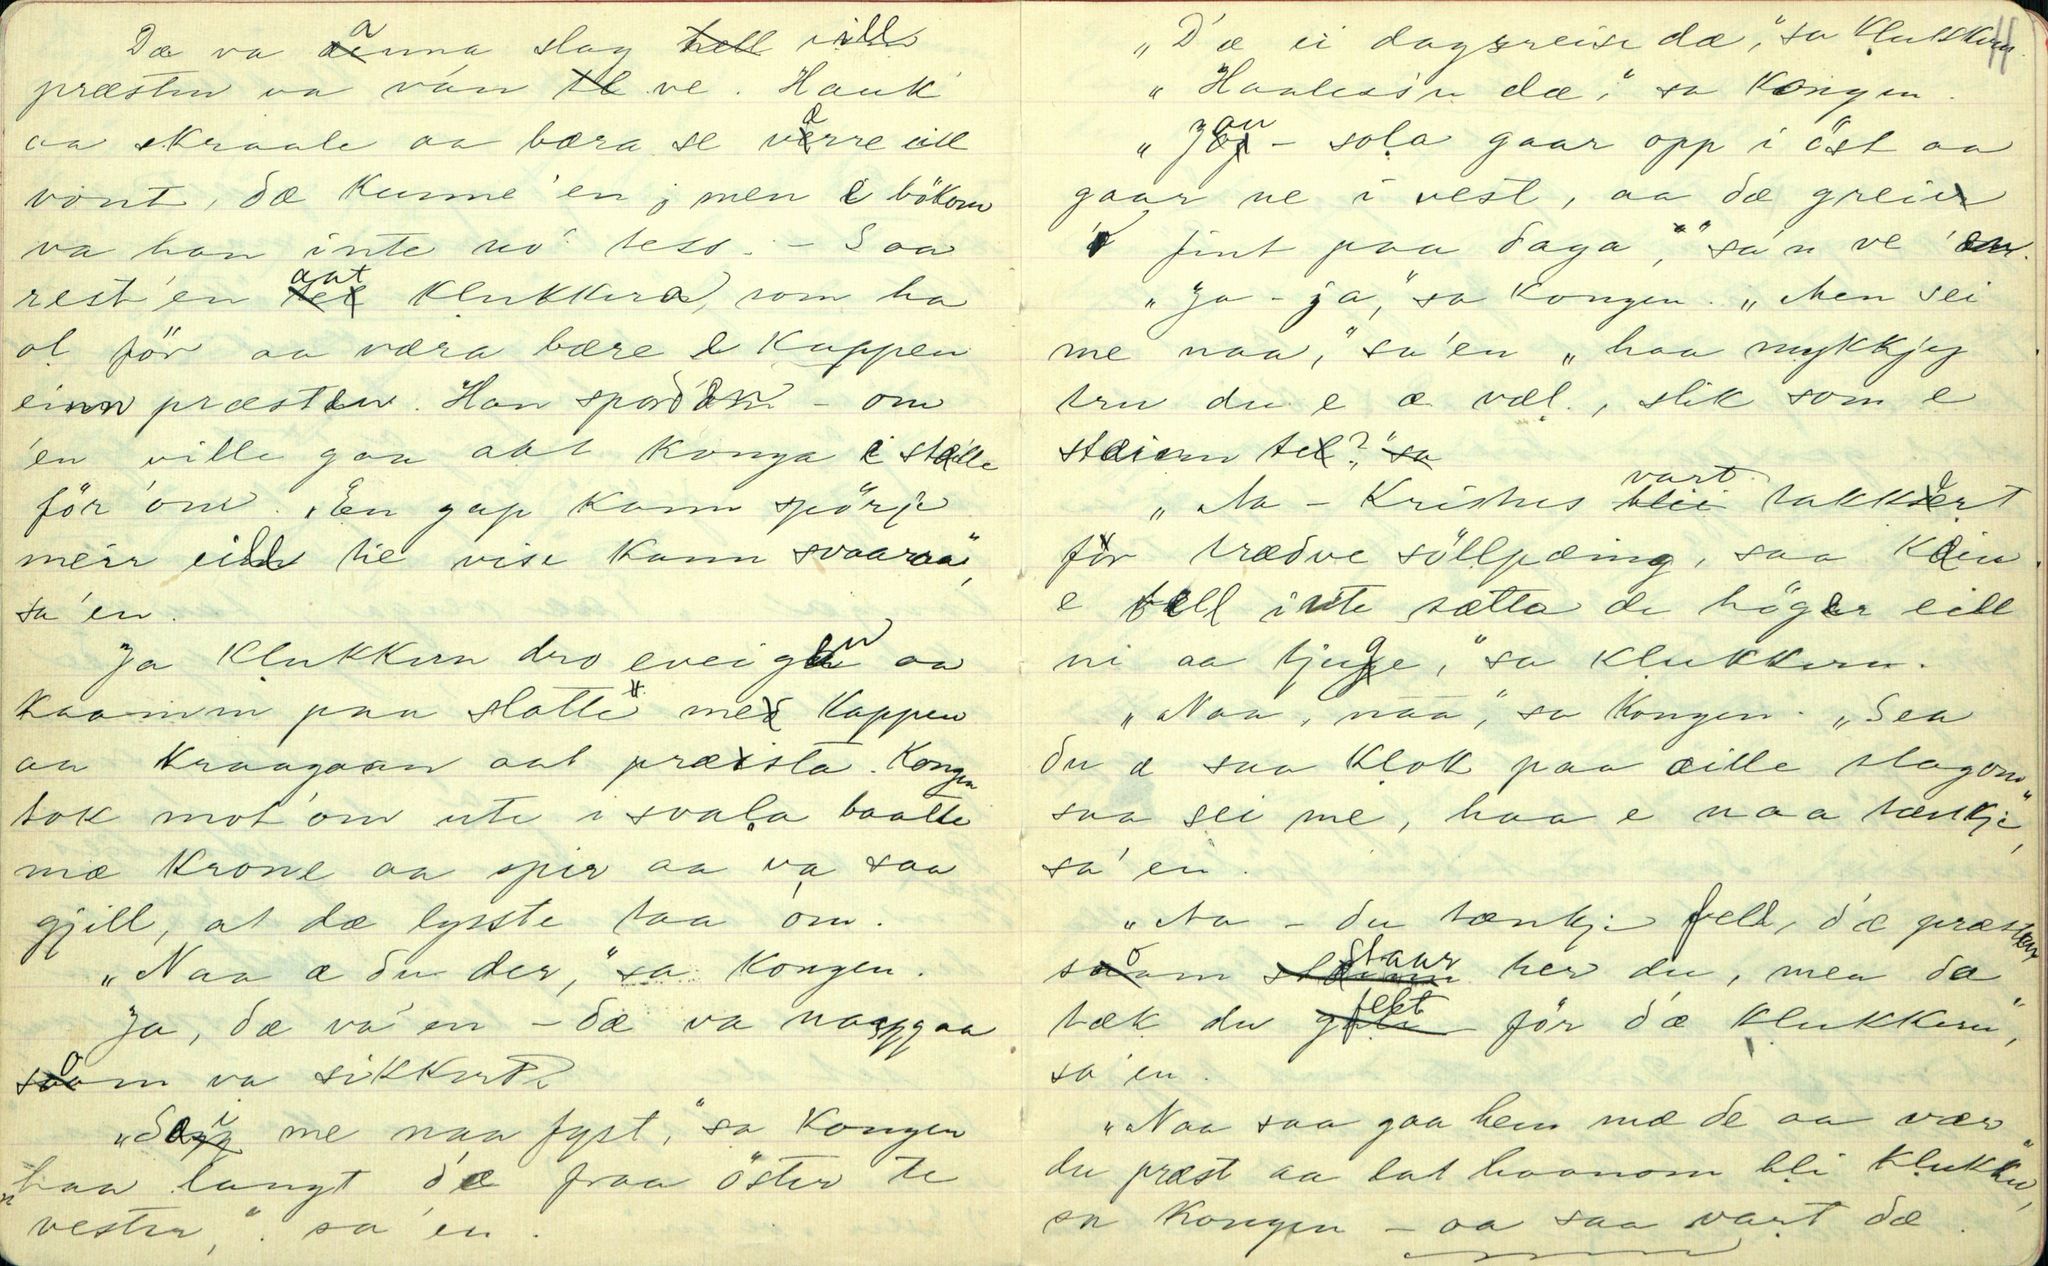 Dæ va anna slag eill
præsten va van ve. Hauk
aa skraale aa bæra se værre eill
vont, dæ kunne 'en; men i bökom
va han inte no' tess. – Saa
rest'en aat klukkera, som ha
ol för aa væra bære i kappen
einn præsten. Han spord'om – om
'en ville gaa aat konga i stælle
för om. „En gap kann spörje
meir eill tie vise kann svaara",
sa'en.
Ja klukkern dro eveigen aa
kaamm paa slotte" me kappen
aa kraagaan aat præsta. Kongen
tok mot'om ute i svala baatte
mæ krone aa spir aa va saa
gjill, at dæ lyste taa'om.
„Naa æ du der," sa kongen.
Ja, dæ va'en – dæ va naaggaa
som va sikkert.
„Sei me naa fyst," sa kongen
„haa langt d'æ fraa öster te
vester," sa'en.
„D'æ ei dagsreise dæ," sa klukkern.
„Haaless'n dæ," sa kongen.
„Jau – sola gaar opp i öst aa
gaar ne i vest, aa dæ greier
'o fint paa daga," sa'n ve'om.
„Ja – ja," sa kongen. „Men sei
me naa," sa'en „haa mykkjy
tru du e æ væl, slik som e
stæinn te?"
„Aa – Kristus vart takkert
för trædve söllpæing, saa kæin
e fell inte sætta de höger eill
ni aa tjuge," sa klukkern.
„Naa, naa," sa kongen. „Sea
du æ saa klok paa æille slagom"
saa sei me, haa e naa tænkje,"
sa'en.
„Aa – du tænkje fell, d'æ præsten
som staar her du, men dæ
tæk du fekt för d'æ klukkern",
sa'en.
„Naa saa gaa hem mæ de aa vær
du præst aa lat haanom bli klukker,"
sa kongen – aa saa vart dæ.